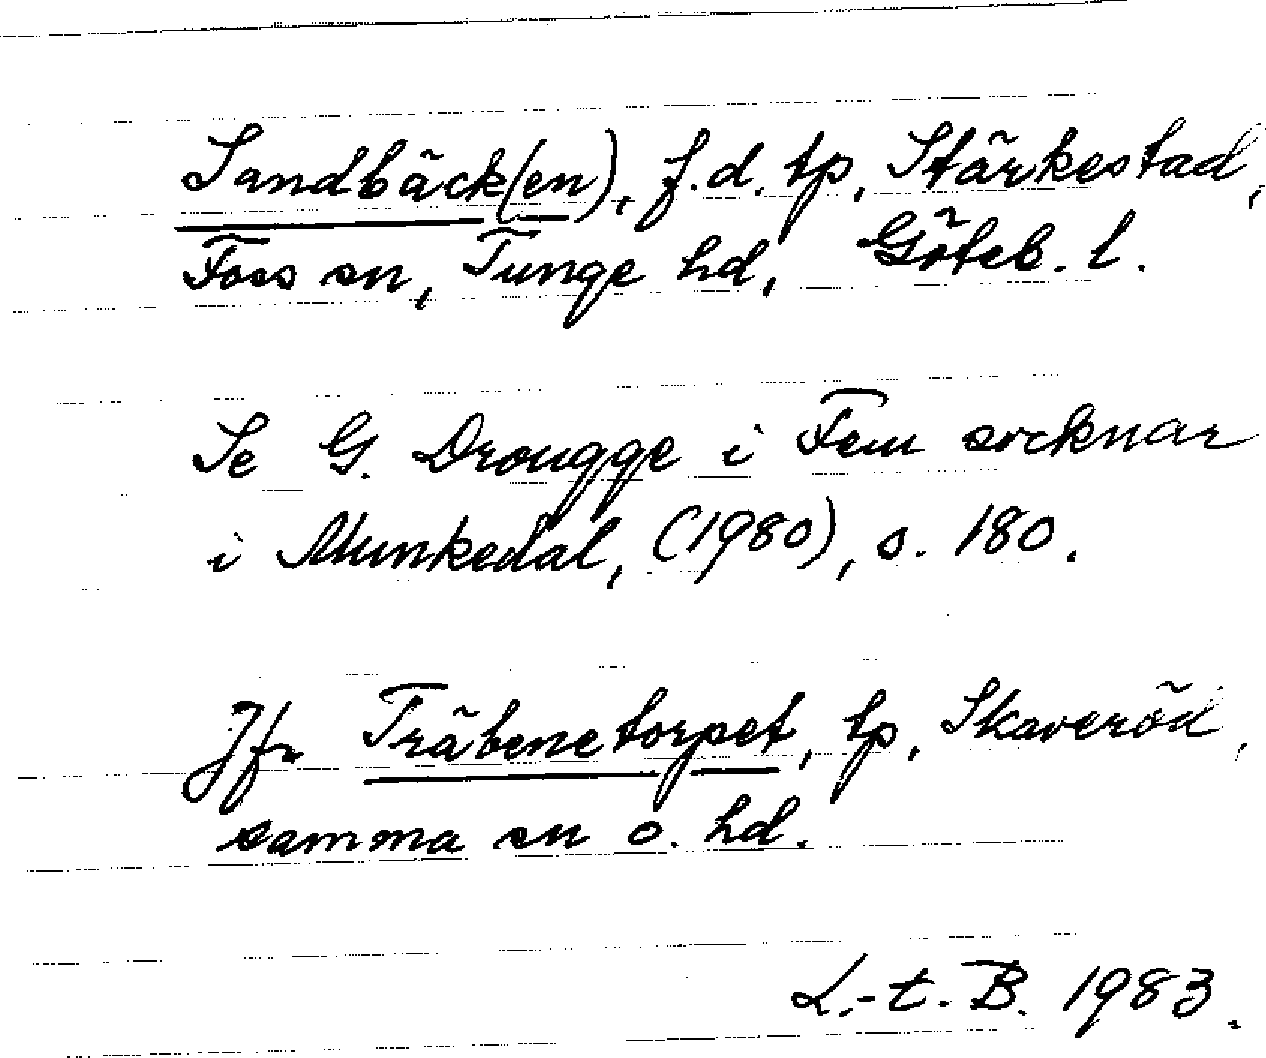 Sandbäck(en), f.d. tp, Stärkestad,
Foss sn, Tunge hd, Göteb. l.
Se G. Drougge i Fem socknar
i Munkedal, (1980), s. 180.
Jfr Träbenetorpet, tp, Skaveröd,
samma sn o. hd.
L.-t. B. 1983.